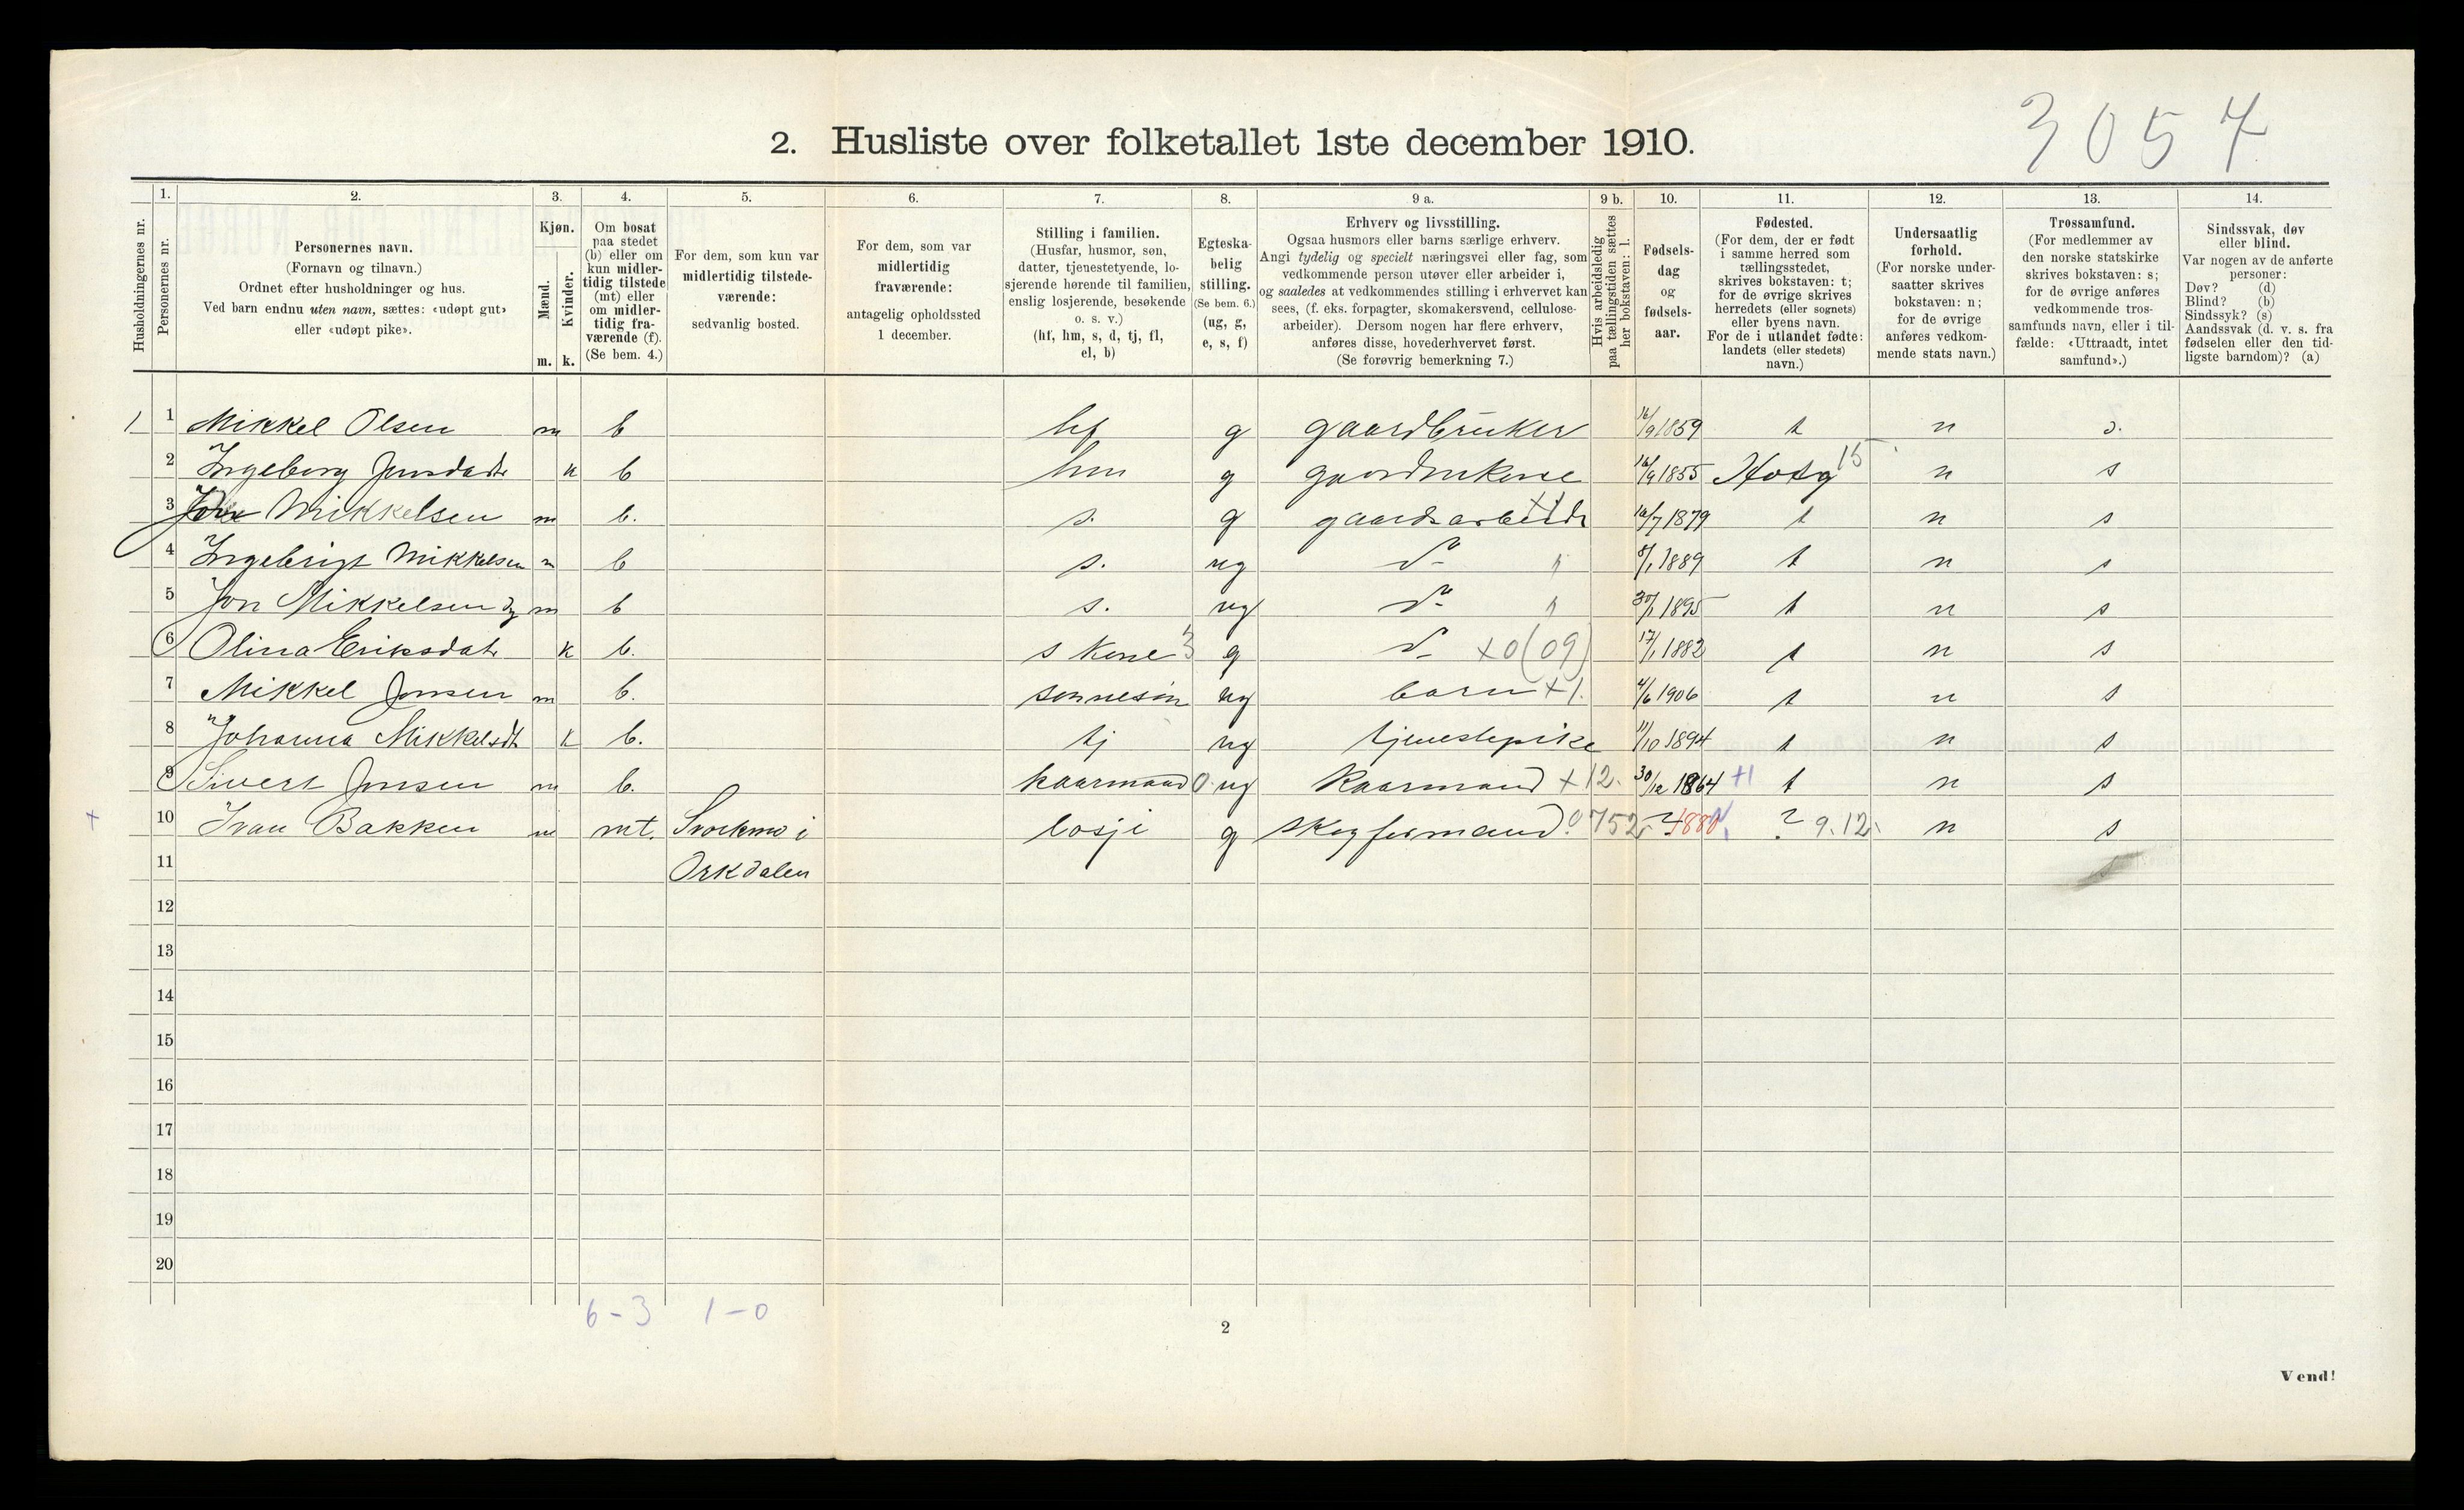 3057
2. Husliste over folketallet 1ste december 1910.
Husholdningernes nr.
1. Personernes nr.
2. Personernes navn.
(Fornavn og tilnavn.)
Ordnet efter husholdninger og hus.
Ved barn endnu uten navn, sættes: «udøpt gut»
eller «udøpt pike».
3. Kjøn.
Mænd. m.
Kvinder. k.
4. Om bosat
paa stedet
(b) eller om
kun midler-
tidig tilstede
(mt) eller
om midler-
tidig fra-
værende (f).
(Se bem. 4.)
5. For dem, som kun var
midlertidig tilstede-
værende:
sedvanlig bosted.
6. For dem, som var
midlertidig
fraværende:
antagelig opholdssted
1 december.
7. Stilling i familien.
(Husfar, husmor, søn,
datter, tjenestetyende, lo-
sjerende hørende til familien,
enslig losjerende, besøkende
o. s. v.)
(hf, hm, s, d, tj, fl,
el, b)
8. Egteska-
belig
stilling.
(Se bem. 6.)
(ug, g,
e, s, f)
9 a. Erhverv og livsstilling.
Ogsaa husmors eller barns særlige erhverv.
Angi tydelig og specielt næringsvei eller fag, som
vedkommende person utøver eller arbeider i,
og saaledes at vedkommendes stilling i erhvervet kan
sees, (f. eks. forpagter, skomakersvend, cellulose-
arbeider). Dersom nogen har flere erhverv,
anføres disse, hovederhvervet først.
(Se forøvrig bemerkning 7.)
9 b. Hvis arbeidsledig
paa tællingstiden sættes
her bokstaven: l.
10. Fødsels-
dag
og
fødsels-
aar.
11. Fødested.
(For dem, der er født
i samme herred som
tællingsstedet,
skrives bokstaven: t;
for de øvrige skrives
herredets (eller sognets)
eller byens navn.
For de i utlandet fødte:
landets (eller stedets)
navn.)
12. Undersaatlig
forhold.
(For norske under-
saatter skrives
bokstaven: n;
for de øvrige
anføres vedkom-
mende stats navn.)
13. Trossamfund.
(For medlemmer av
den norske statskirke
skrives bokstaven: s;
for de øvrige anføres
vedkommende tros-
samfunds navn, eller i til-
fælde: «Uttraadt, intet
samfund».)
14. Sindssvak, døv
eller blind.
Var nogen av de anførte
personer:
Døv? (d)
Blind? (b)
Sindssyk? (s)
Aandssvak (d. v. s. fra
fødselen eller den tid-
ligste barndom)? (a)
1 1 Mikkel Olsen m b hf g gaardbruker 16/9 1859 t n s.
2 Ingeborg Jonsdatr k b hm g 16/9 1855 15 n s
3 Mikkelsen m b. s. g gaardsarbeide 1879 t n s
4 Ingebrigt Mikkelsen m b s. ug do 8/1 1889 t n s
5 Jon Mikkelsen m b s. ug do 1895 t n s
6 Olina Eriksdatr k b. s kone 3 g do x0(09) 17/1 1882 t n s
7 Mikkel Jonsen m b. sønnesøn ug barn +1. 4/6 1906 t n s
8 Johanna Mikkelsdt k b. tj ug tjenestepike 11/10 1894 t n s
9 Sivert Jonsen m b. kaarmand 0 ug Kaarmand +12. 30/12 1864 +1 t n s
x 10 Ivar Bakken m mt. Svorkmo i losji g skogformand 0752 ? 1880 ? 9.12. n s
11 Orkdalen
12
13
14
15
16
17
18
19
20
6-3 1-0
2
Vend!